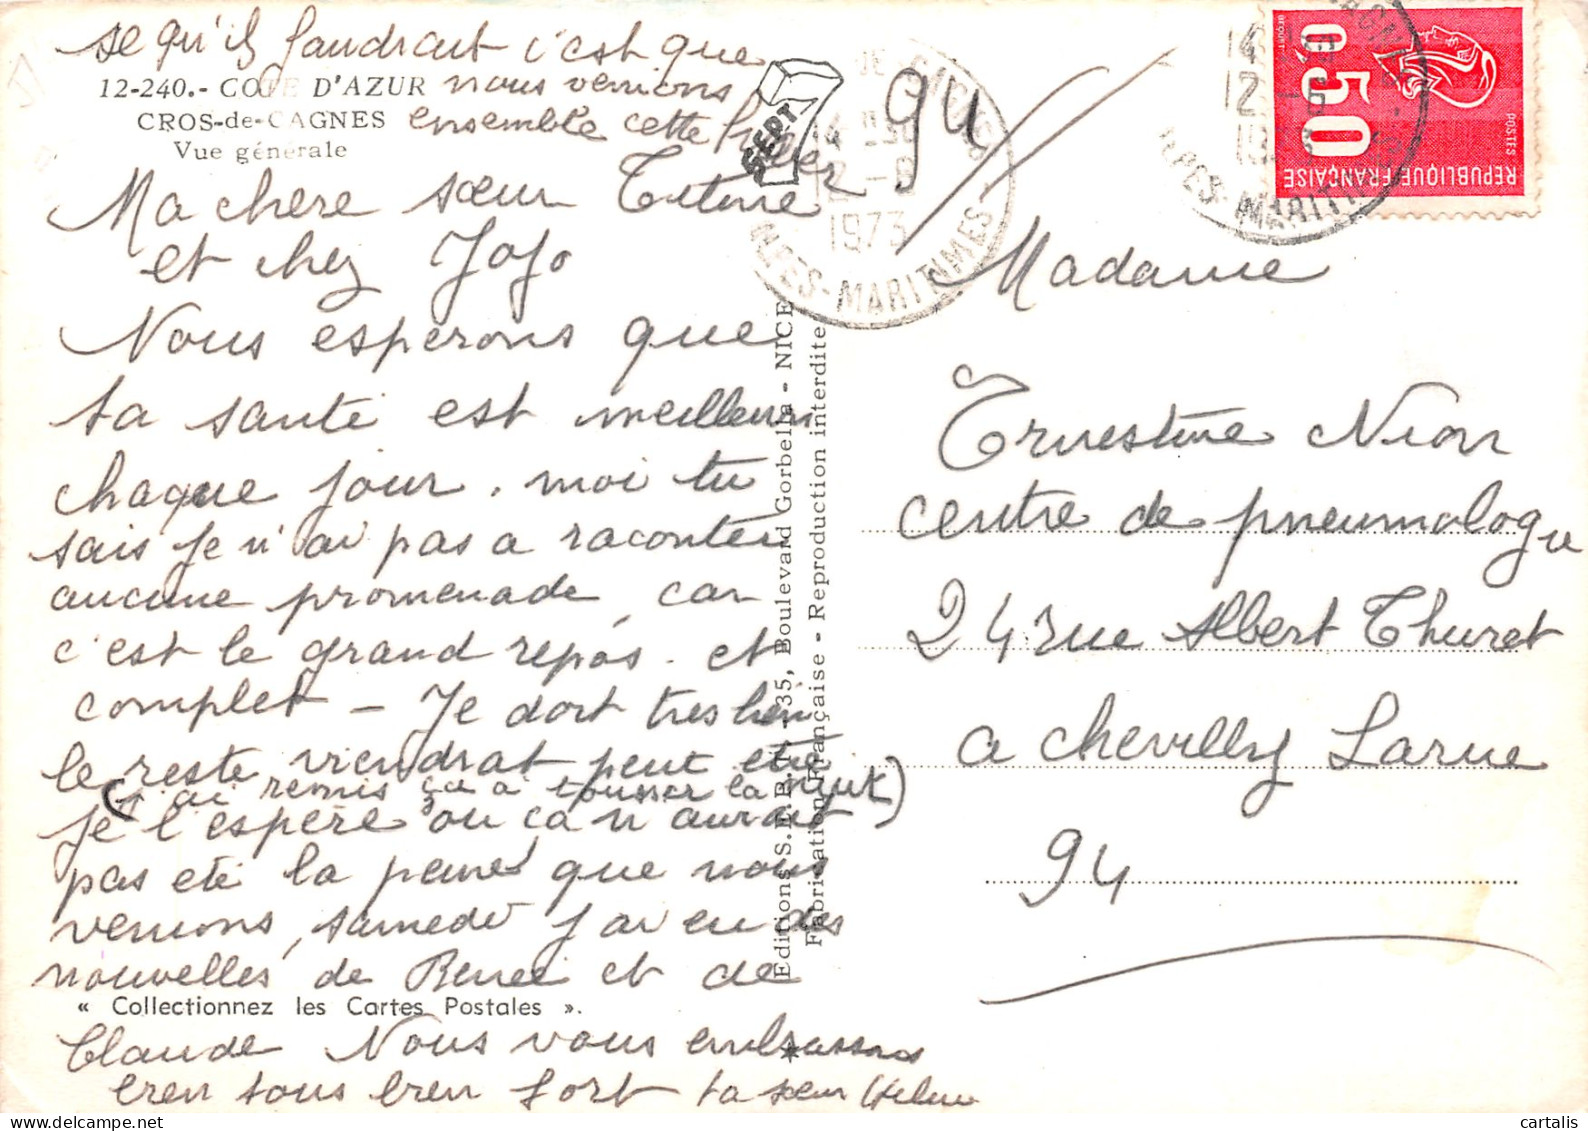 se qu'il faudrait c'est que
nous venions
ensemble cette hiver
12-240.- COTE D'AZUR
CROS-de-CAGNES
Vue générale
Ma chere sœur Titine
et chez Jojo
Nous esperons que
ta santé est meilleur
chaque jour. moi tu
sais je n'ai pas a raconter
aucune promenade, car
c'est le grand repos. et
complet - Je dort tres bien
le reste viendrat peut etre
(J'ai remis ça a tousser la nuit)
je l'espère ou ça n'aurait
pas eté la peine que nous
venions, samedi j'ai eu des
nouvelles de Renee et de
« Collectionnez les Cartes Postales ».
Claude Nous vous embrassons
bien tous bien fort ta sœur Helene
Editions S.E.P.T. - 35, Boulevard Gorbella - NICE
Fabrication Française - Reproduction interdite
SEPT
94
14 H 30
12 - 6
1973
ALPES-MARITIMES
14 H 30
12 - 6
1973
ALPES-MARITIMES
0,50
POSTES
REPUBLIQUE FRANÇAISE
BEQUET
Madame
Ernestine Nion
centre de pneumologue
24 rue Albert Thuret
a chevilly Larue
94
cartalis
delcampe.net